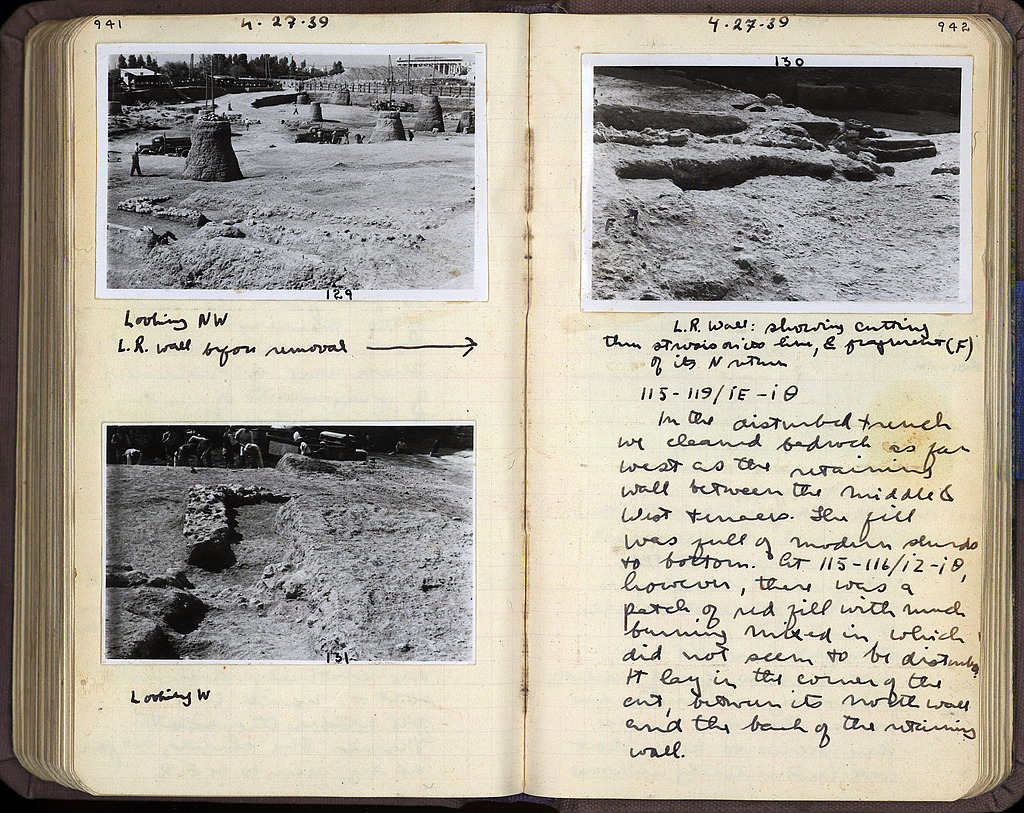 941
4-27-39
129
Looking NW
L.R. wall before removal
131
Looking W
4-27-39
942
130
L.R. Wall: showing cutting
thru stwais on its line, & fragment (F)
of its N return
115-119/ΙΕ-ΙΘ
In the disturbed trench
we cleaned bedrock as far
west as the retaining
wall between the middle &
West terraces. The fill
was full of modern sherds
to bottom. At 115-116/ΙΖ-ΙΘ,
however, there was a
patch of red fill with much
burning mixed in, which
did not seem to be disturbed.
It lay in the corner of the
cut, between its north wall
and the back of the retaining
wall.